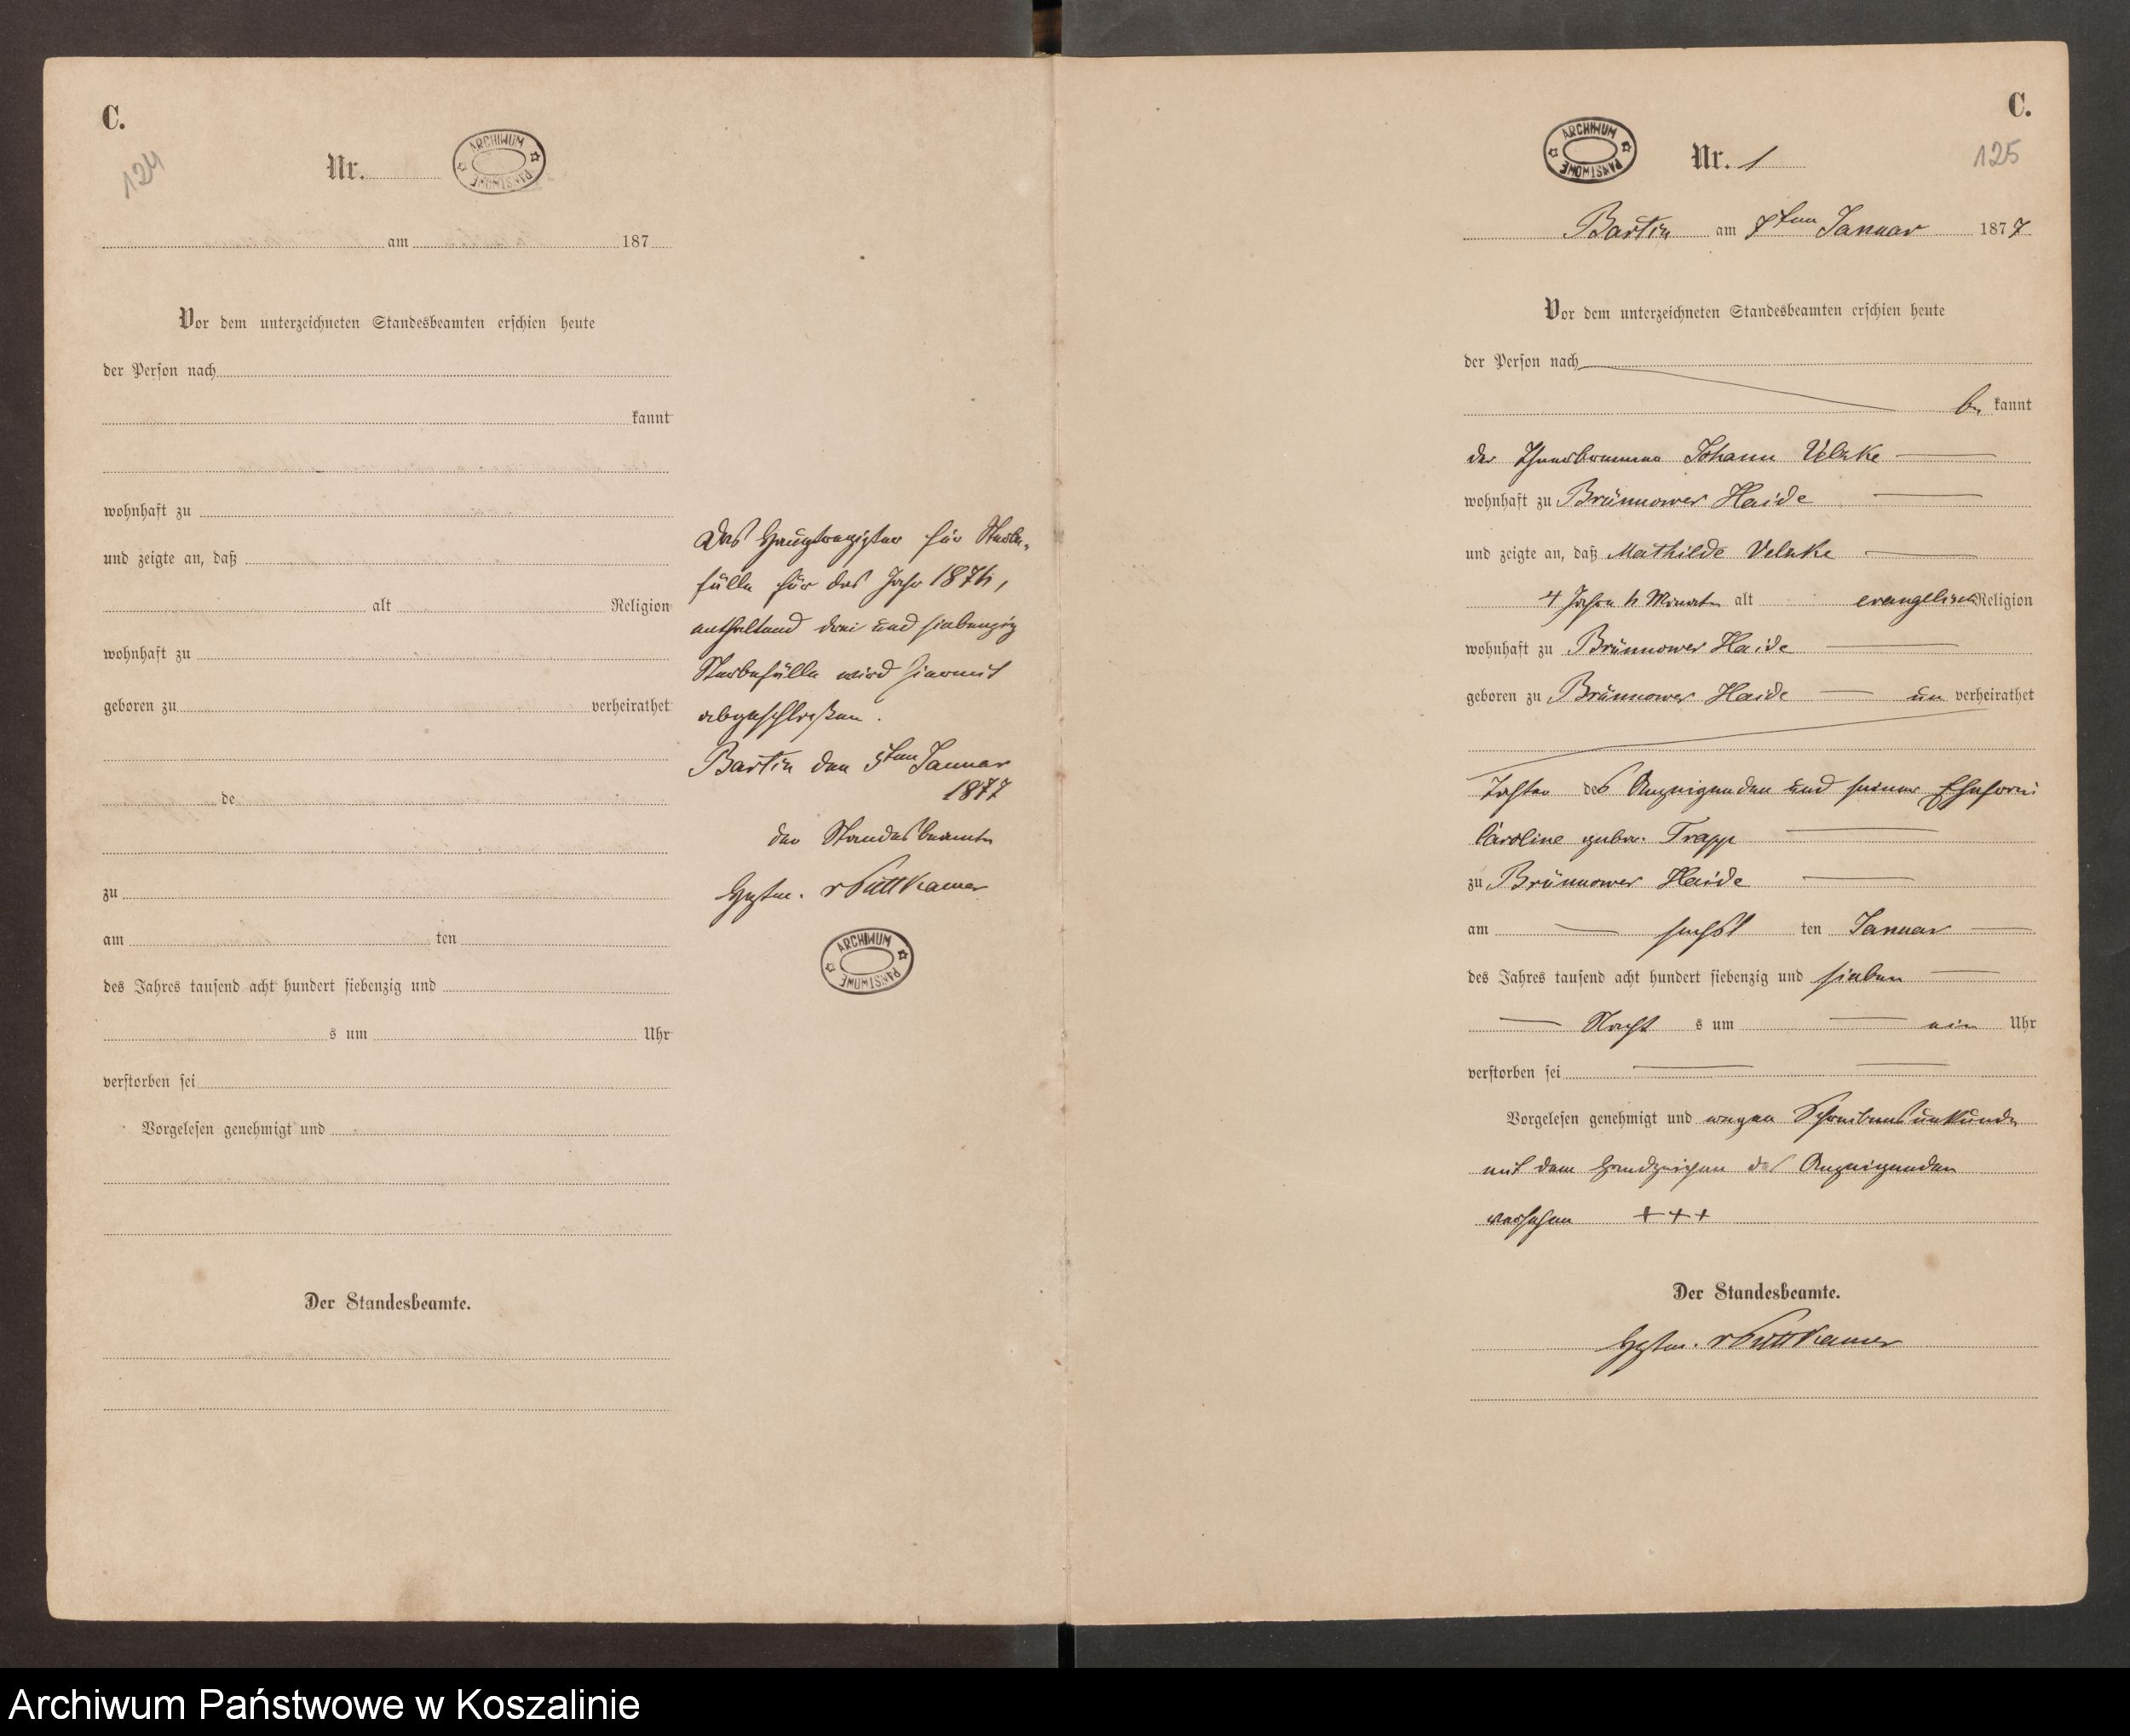 C.
124
Nr.
ARCHIWUM PAŃSTWOWE
am 187
Vor dem unterzeichneten Standesbeamten erschien heute
der Person nach
kannt
wohnhaft zu
und zeigte an, daß
alt Religion
wohnhaft zu
geboren zu verheirathet
de
zu
am ten
des Jahres tausend acht hundert siebenzig und
s um Uhr
verstorben sei
Vorgelesen genehmigt und
Der Standesbeamte.
Das Hauptregister für Sterbe-
fälle für das Jahr 1876,
enthaltend drei und siebenzig
Sterbefälle wird hiermit
abgeschloßen.
Bartin den 5ten Januar
1877
der Standesbeamte
v Puttkamer
ARCHIWUM PAŃSTWOWE
C.
ARCHIWUM PAŃSTWOWE
Nr. 1
125
Bartin am 7ten Januar 1877
Vor dem unterzeichneten Standesbeamten erschien heute
der Person nach
be kannt
der Johann Velzke
wohnhaft zu Brünnower Haide
und zeigte an, daß Mathilde Velzke
4 Jahre 6 Monate alt evangelisch Religion
wohnhaft zu Brünnower Haide
geboren zu Brünnower Haide un verheirathet
Tochter des Anzeigenden und seiner Ehefrau
Caroline gebor. Trapp
zu Brünnower Haide
am sechst ten Januar
des Jahres tausend acht hundert siebenzig und sieben
Nacht s um ein Uhr
verstorben sei
Vorgelesen genehmigt und wegen Schreibensunkunde
mit dem Handzeichen des Anzeigenden
versehen +++
Der Standesbeamte.
v Puttkamer
Archiwum Państwowe w Koszalinie